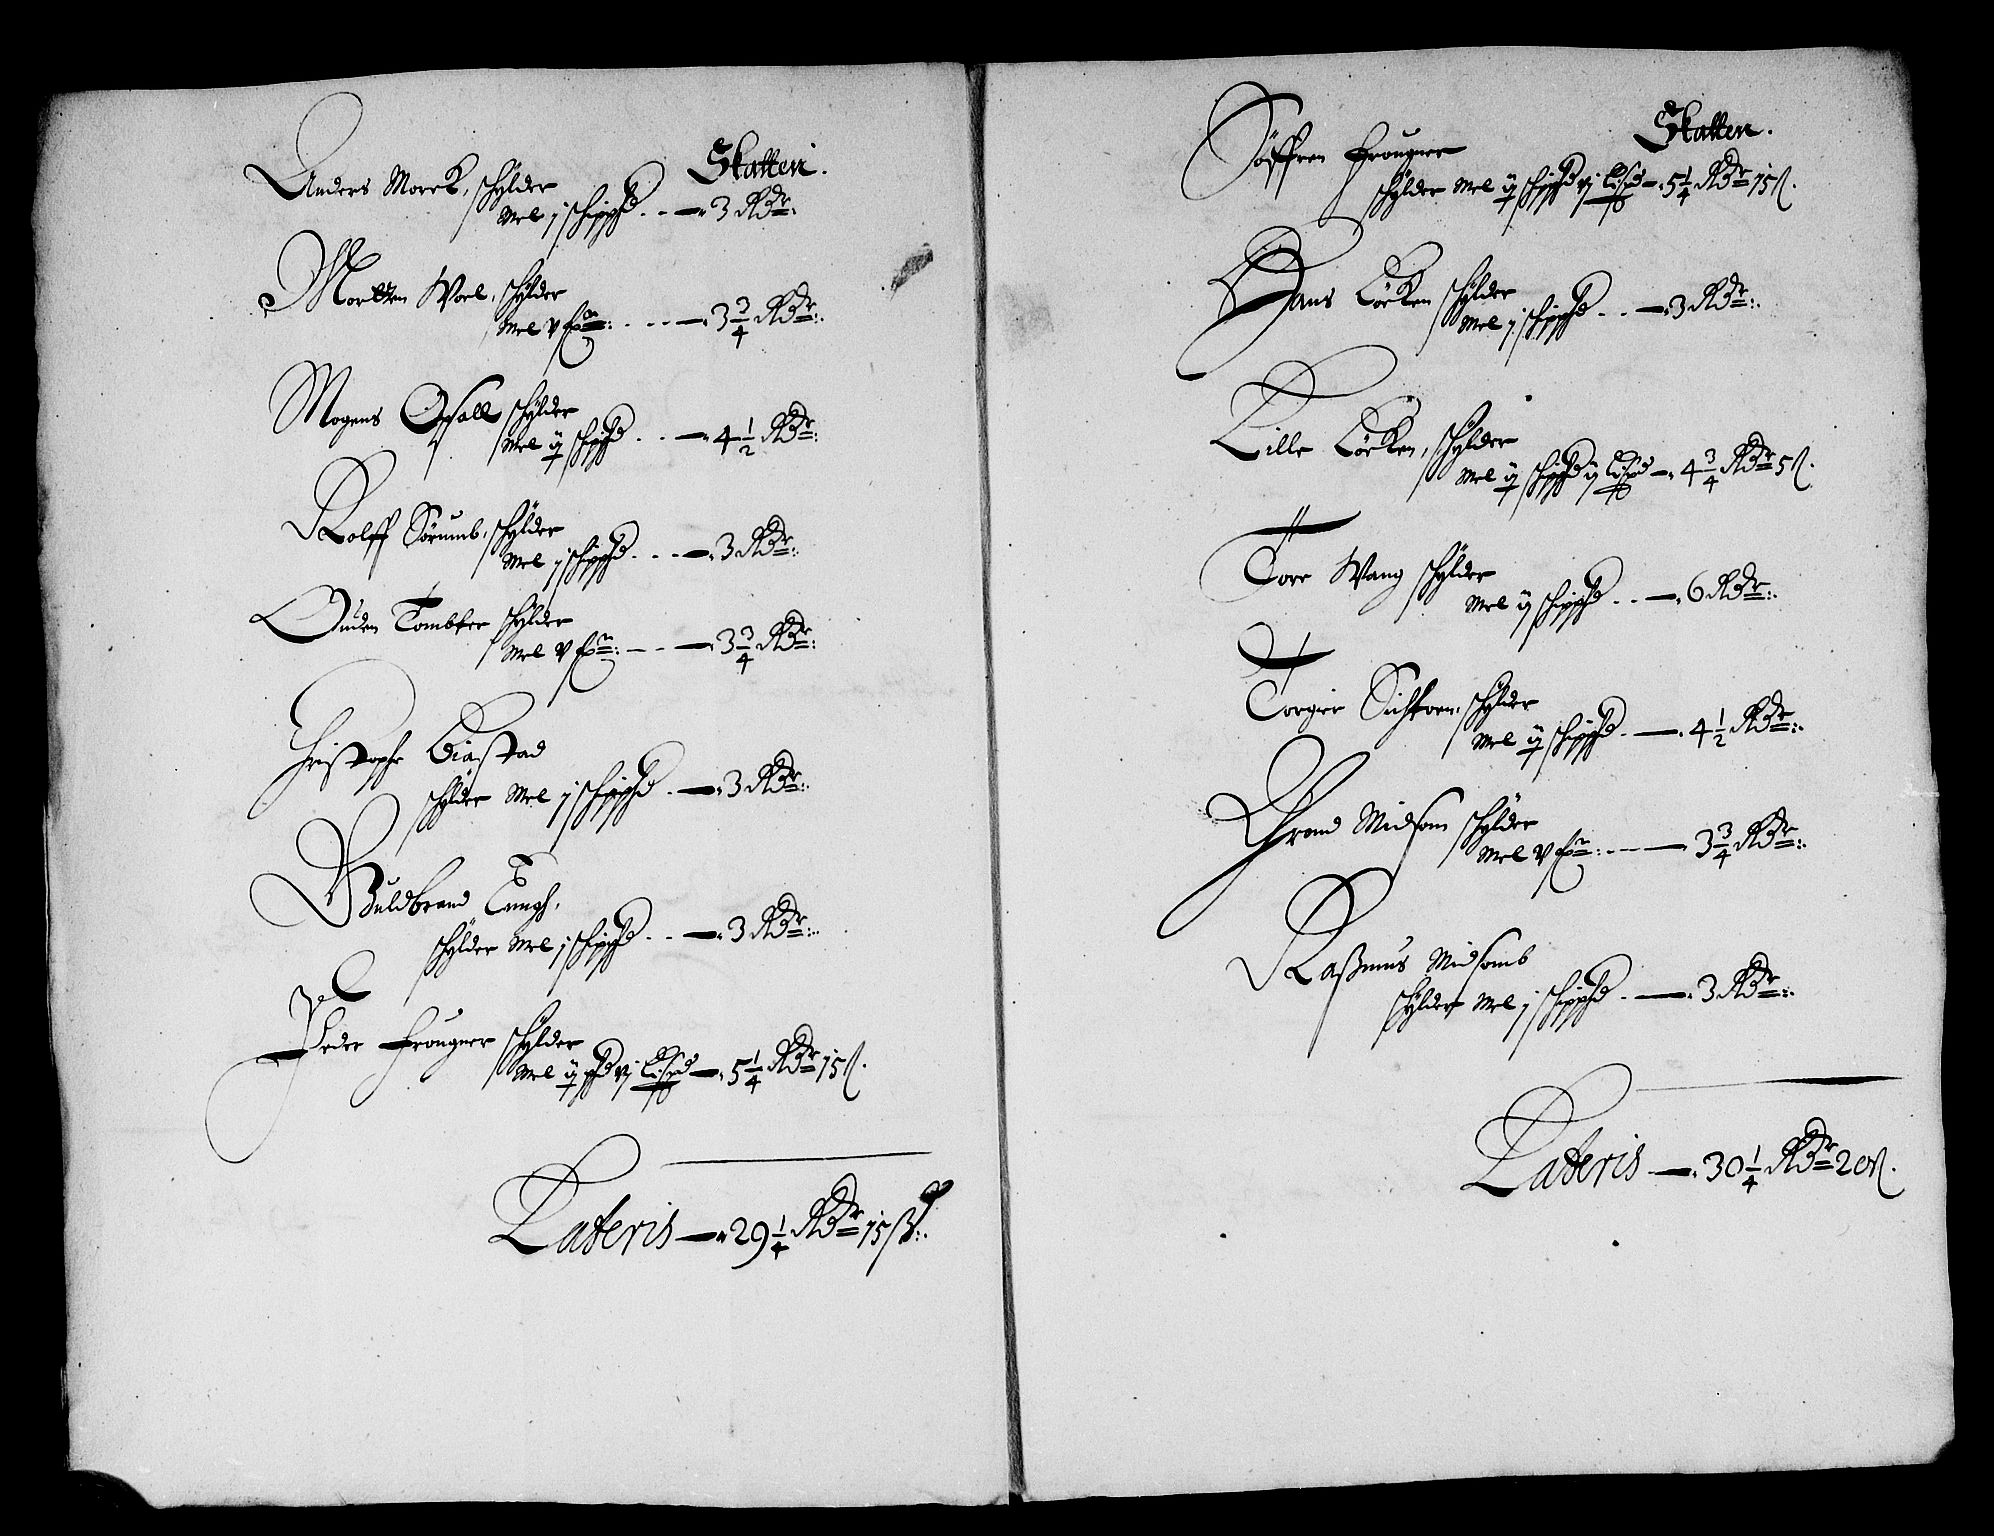 Skatten.
Anders Morck, schylder
Mel j schippd. - - 3 Rdr:
Mortten Woel, schylder
Mel v fr: - - - 3 3/4 Rdr:
Mogens Opsall schylder
Mel ij schippd. - - 4 1/2 Rdr:
Rolff Sørumb, schylder
Mel j schippd. - - 3 Rdr:
Ouden Tombter schylder
Mel v fr: - - - 3 3/4 Rdr:
Christopher Biastad
schylder Mel j schippd - 3 Rdr:
Guldbrand Tungh,
schylder Mel j schippd - - 3 Rdr:
Peder Frougner schylder
Mel ij spd vj Lispd - 5 1/4 Rdr 15 ß.
Lateris - 29 1/4 Rdr 15 ß:
Skatten.
Søffren Frougner
schylder Mel ij schippd vj Lispd - 5 1/4 Rdr 15 ß.
Hans Løcken schylder
Mel j schippd - - 3 Rdr:
Lille Løcken, schylder
Mel ij schippd ij Lispd - 4 3/4 Rdr 5 ß.
Tore Wang schylder
Mel ij schippd - - 6 Rdr:
Torgier schylder
Mel ij schippd - 4 1/2 Rdr:
Trond Midsom schylder
Mel v fr: - - 3 3/4 Rdr:
Rasmus Midsomb
schylder Mel j schippd - 3 Rdr:
Lateris - 30 1/4 Rdr 20 ß.